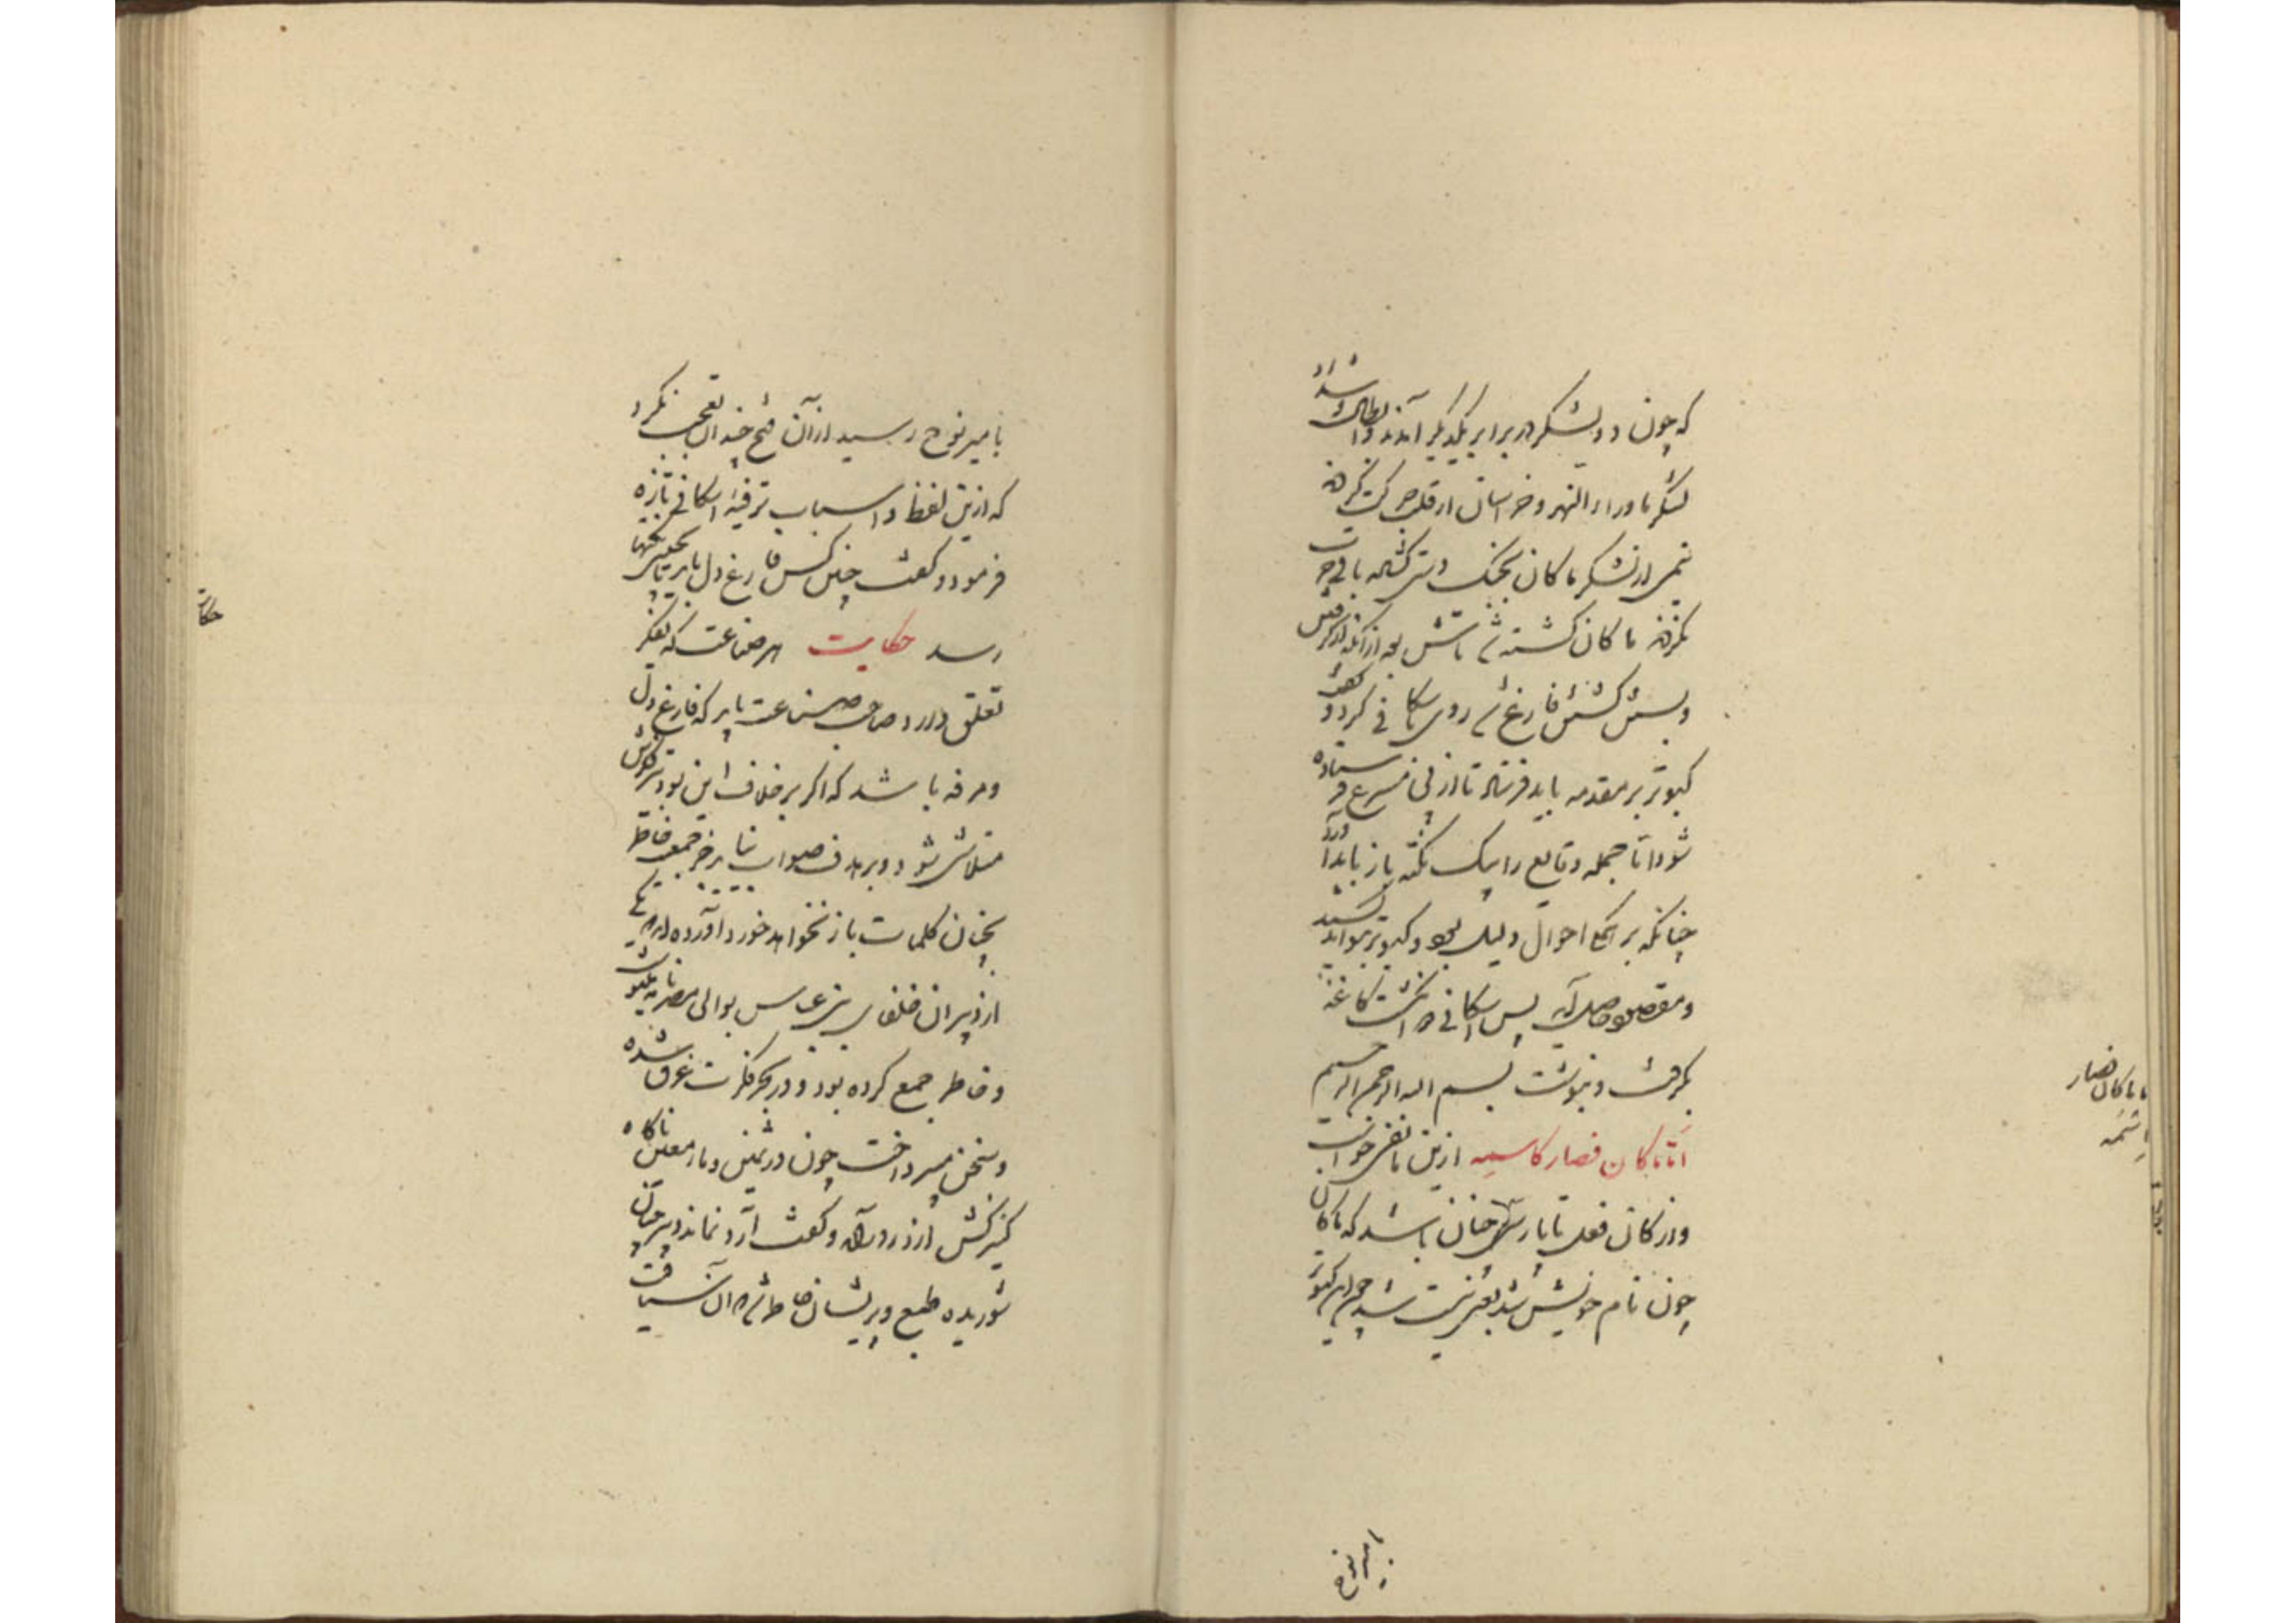 که چون دو لشکر در برابر یکدیگر آمدند و ابطال و شداد
لشکر ماوراءالنهر و خراسان از قلب حرکت کردند
نیمی از لشکر ماکان بجنگ دستی گشاد باقی حرب
نکردند ماکان کشته شد تاش بعد از آنکه از گرفتن
و بستن و کشتن فارغ شد روی باسکافی کرد و گفت
کبوتر بر مقدمه باید فرستاد تا از پی مسرع فرستاده
شود اما جمله وقایع را بیک نکته باز باید آورد
چنانکه بر همگی احوال دلیل بود و کبوتر بتواند کشید
و مقصود حاصل آید پس اسکافی دو انگشت کاغذ
بگرفت و بنوشت بسم الله الرحمن الرحیم
اما ماکان فصار کاسمه ازین ما نفی خواست
و از کان فعل تا پارسی چنان باشد که ماکان
چون نام خویش شد یعنی نیست شد چون این کبوتر
بامیر نوح
ماکان فصار
کاسمه
بامیر نوح رسید از آن فتح چندان تعجب نکرد
که ازین لفظ و اسباب ترفیه اسکافی تازه
فرمود و گفت چنین کس فارغ دل باید تا بچنین نکتها
رسد حکایت هر صناعت که بتفکر
تعلق دارد صاحب صناعت باید که فارغ دل
و مرفه باشد که اگر بر خلاف این بود تیر فکرش
متلاشی شود و بر هدف صواب نیاید زیرا جز بجمع خاطر
بچنان کلمات باز نخواهد خورد آورده اند یکی
از دبیران خلفای بنی عباس بوالی مصر نامه مینوشت
و خاطر جمع کرده بود و در بحر فکرت غرق شده
و سخن میپرداخت چون در ثمین و ماء معین ناگاه
کنیزکش از در درآمد و گفت آرد نماند دبیر چنان
شوریده طبع و پریشان خاطر شد که آن سیاقت
حکایت